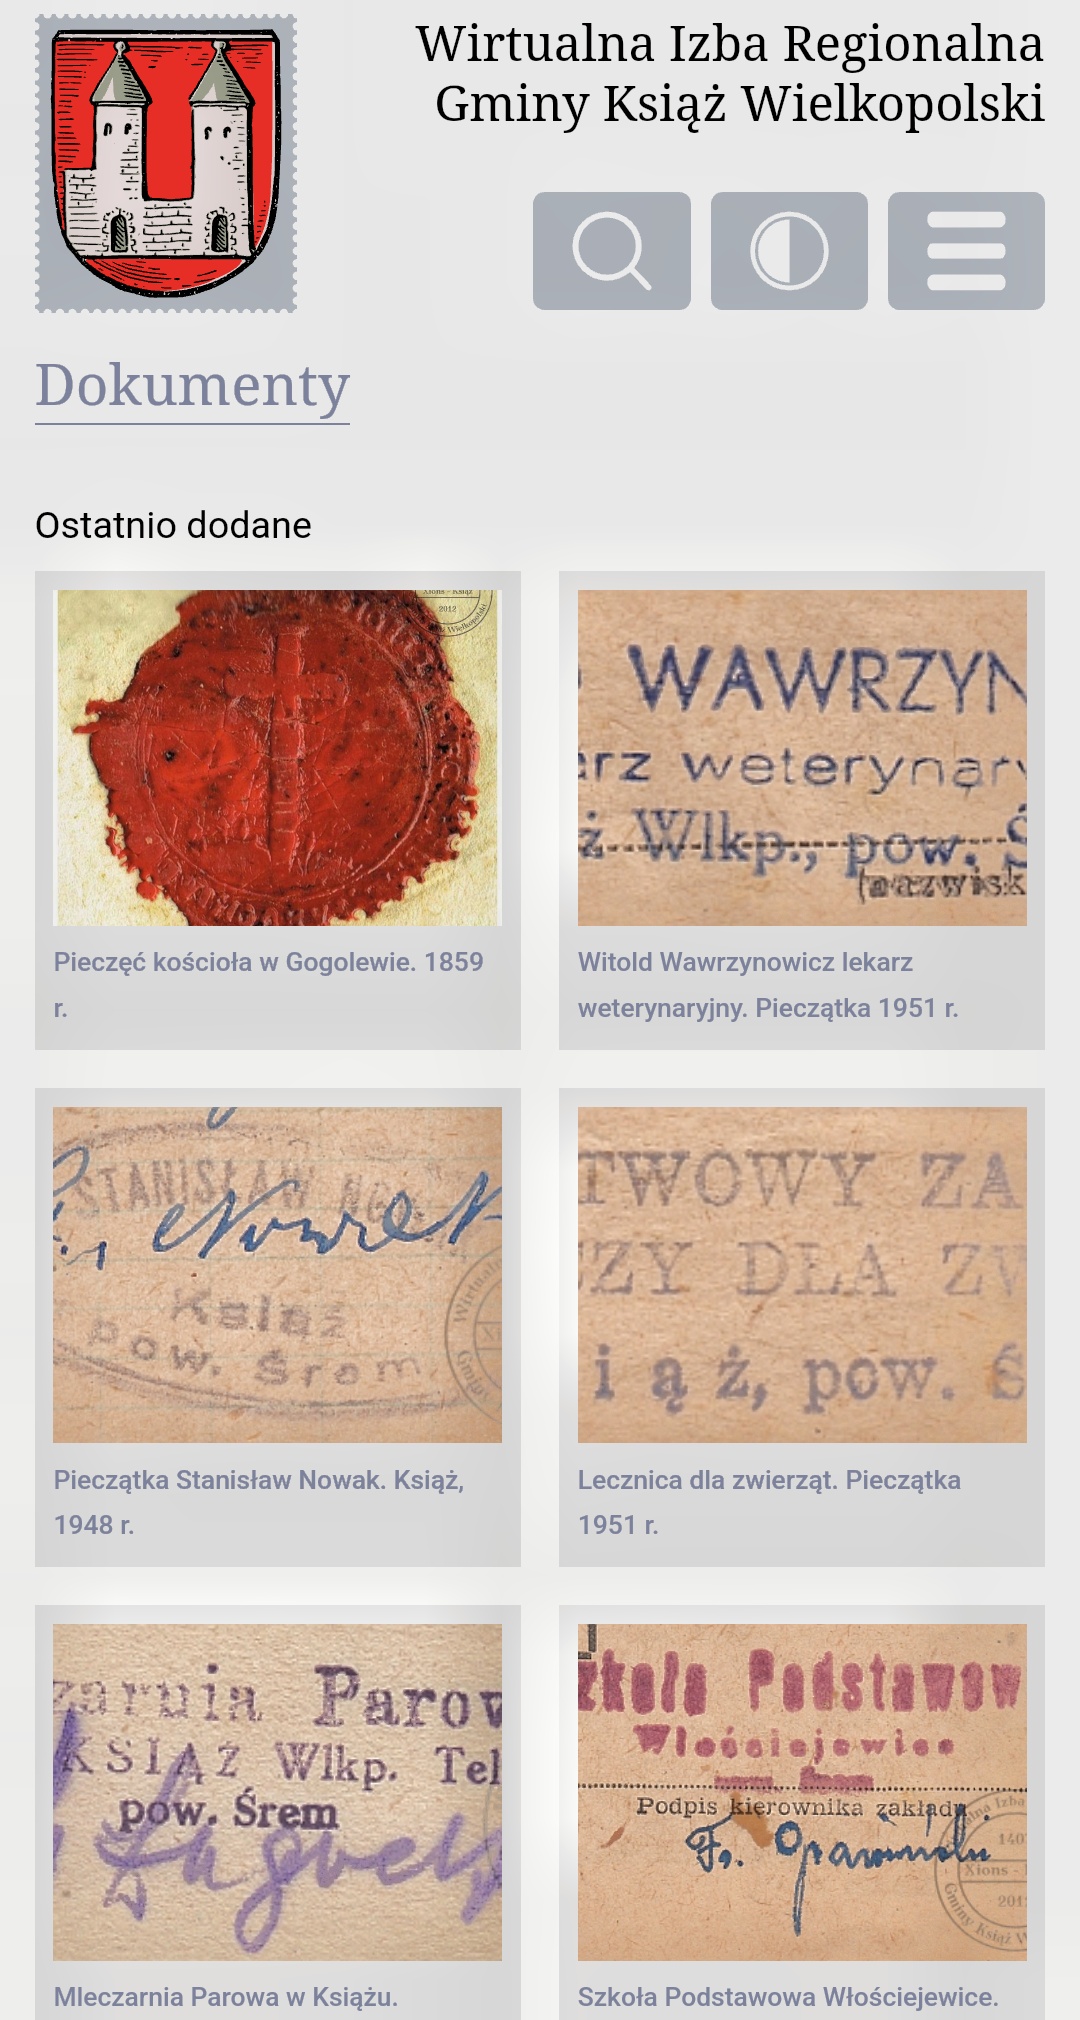 Wirtualna Izba Regionalna
Gminy Książ Wielkopolski
Dokumenty
Ostatnio dodane
Xions - Książ
2012
Wielkopolski
WAWRZYN
arz weterynary
ż Wlkp., pow. Ś
(nazwisk
Pieczęć kościoła w Gogolewie. 1859
r.
Witold Wawrzynowicz lekarz
weterynaryjny. Pieczątka 1951 r.
STANISŁAW
Nowak
Książ
pow. Śrem
TWOWY ZA
CZY DLA ZW
i ą ż, pow. Ś
Pieczątka Stanisław Nowak. Książ,
1948 r.
Lecznica dla zwierząt. Pieczątka
1951 r.
zarnia Parow
KSIĄŻ Wlkp. Tel
pow. Śrem
zkoła Podstawow
Włościejewice
Podpis kierownika zakładu
Fr.
Xions -
Gminy Książ W
Mleczarnia Parowa w Książu.
Szkoła Podstawowa Włościejewice.